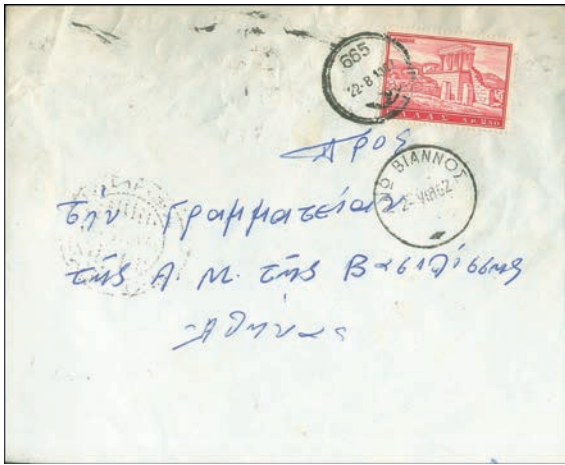 665
ΕΛΛΑΣ ΔΡ. 2.50
ΒΙΑΝΝΟΣ
Πρός
τήν Γραμματείαν
τῆς Α. Μ. τῆς Βασιλίσσης
Ἀθήνας